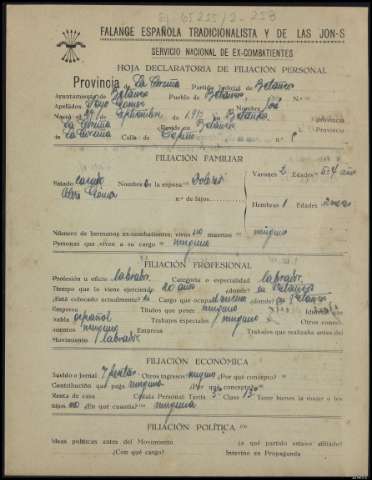 65255/2-253
FALANGE ESPAÑOLA TRADICIONALISTA Y DE LAS JON-S
SERVICIO NACIONAL DE EX-COMBATIENTES
HOJA DECLARATORIA DE FILIACIÓN PERSONAL
Provincia de La Coruña Partido Judicial de Betanzos
Ayuntamiento de Betanzos Pueblo de Betanzos
Apellidos Gomez Nombre José
Nació el de Septiembre de en Betanzos
La Coruña Reside en Betanzos Provincia
La Coruña Calle de n.º
FILIACIÓN FAMILIAR
Estado casado Nombre de la esposa Dolores Varones 2 Edades 5 y 4 años
n.º de hijos. Hembras 1 Edades 2 meses
Número de hermanos ex-combatientes; vivos no muertos ninguno
Personas que viven a su cargo ninguna
FILIACIÓN PROFESIONAL
Profesión u oficio labrador Categoría o especialidad labrador
Tiempo que lo viene ejerciendo 20 años ¿dónde? en Betanzos
¿Está colocado actualmente? si Cargo que ocupa ¿dónde? en Betanzos
Empresa Títulos que posee ninguno
habla español Trabajos especiales ninguno Otros conoci-
mientos ninguno Empresa Trabajos que realizaba antes del
Movimiento labrador
FILIACIÓN ECONÓMICA
Sueldo o Jornal 7 pesetas Otros ingresos ninguno ¿Por qué concepto?
Contribución que paga ninguna concepto
Renta de casa Cédula Personal Tarifa Clase 13 Tiene bienes la mujer o los
hijos no ¿En qué cuantía? ninguna
FILIACIÓN POLÍTICA
Ideas políticas antes del Movimiento ¿a qué partido estuvo afiliado?
¿Con qué cargo? Intervino en Propaganda